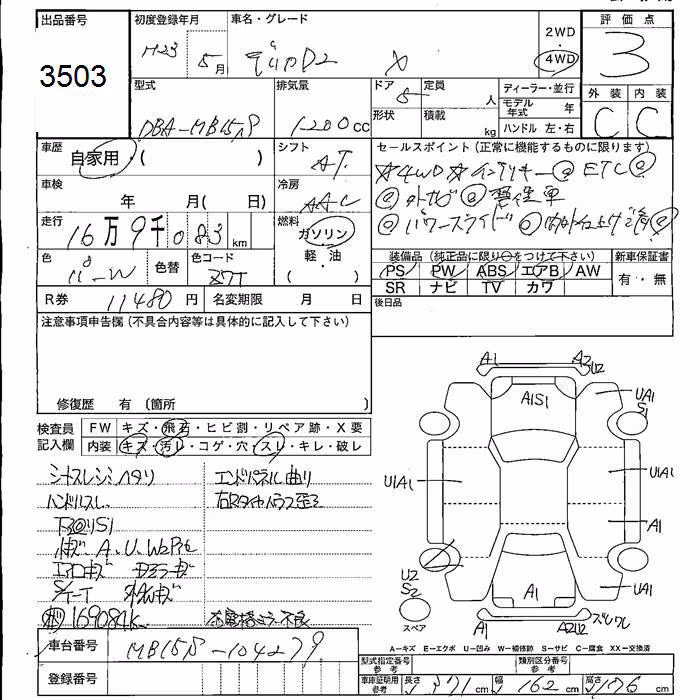 出品番号
3503
初度登録年月
H23 5月
車名・グレード
デリカD2 X
2WD
・
4WD
評価点
3
外装 内装
C C
型式
DBA-MB15S
排気量
1200cc
ドア
5
形状
定員
人
積載
kg
ディーラー・並行
モデル年式 年
ハンドル 左・右
車歴
自家用・( )
シフト
AT
セールスポイント(正常に機能するものに限ります)
☆4WD☆インテリキー◎ETC◎
◎外ナビ◎禁煙車
◎パワースライド
車検
年 月( 日)
冷房
AAC
走行
16万9千083km
燃料
ガソリン
・
軽・油
( )
色
パ-W
色替
色コード
装備品(純正品に限り○をつけて下さい)
PS PW ABS エアB AW
SR ナビ TV カワ
新車保証書
有・無
R券 11480円
名変期限 月 日
後日品
注意事項申告欄(不具合内容等は具体的に記入して下さい)
修復歴 有 (箇所 )
検査員記入欄
FW キズ・飛石・ヒビ割・リペア跡・X要
内装 キズ・汚レ・コゲ・穴・スレ・キレ・破レ
ハンドルスレ
エンドパネル曲り
A、U、W2
エアロキズ
169084k
車台番号
MB15S-104279
登録番号
A1 A2 U2
A1S1
UA1 S1
U1A1
U1A1
A1
U2 S2
UA1
A1
スペア
A1 A2U2 ズレワレ
A-キズ E-エクボ U-凹み W-補修跡 S-サビ C-腐食 XX-交換済
型式指定番号 参考
類別区分番号 参考
車庫証明用 参考
長さ 371cm
幅 162cm
高さ 186cm